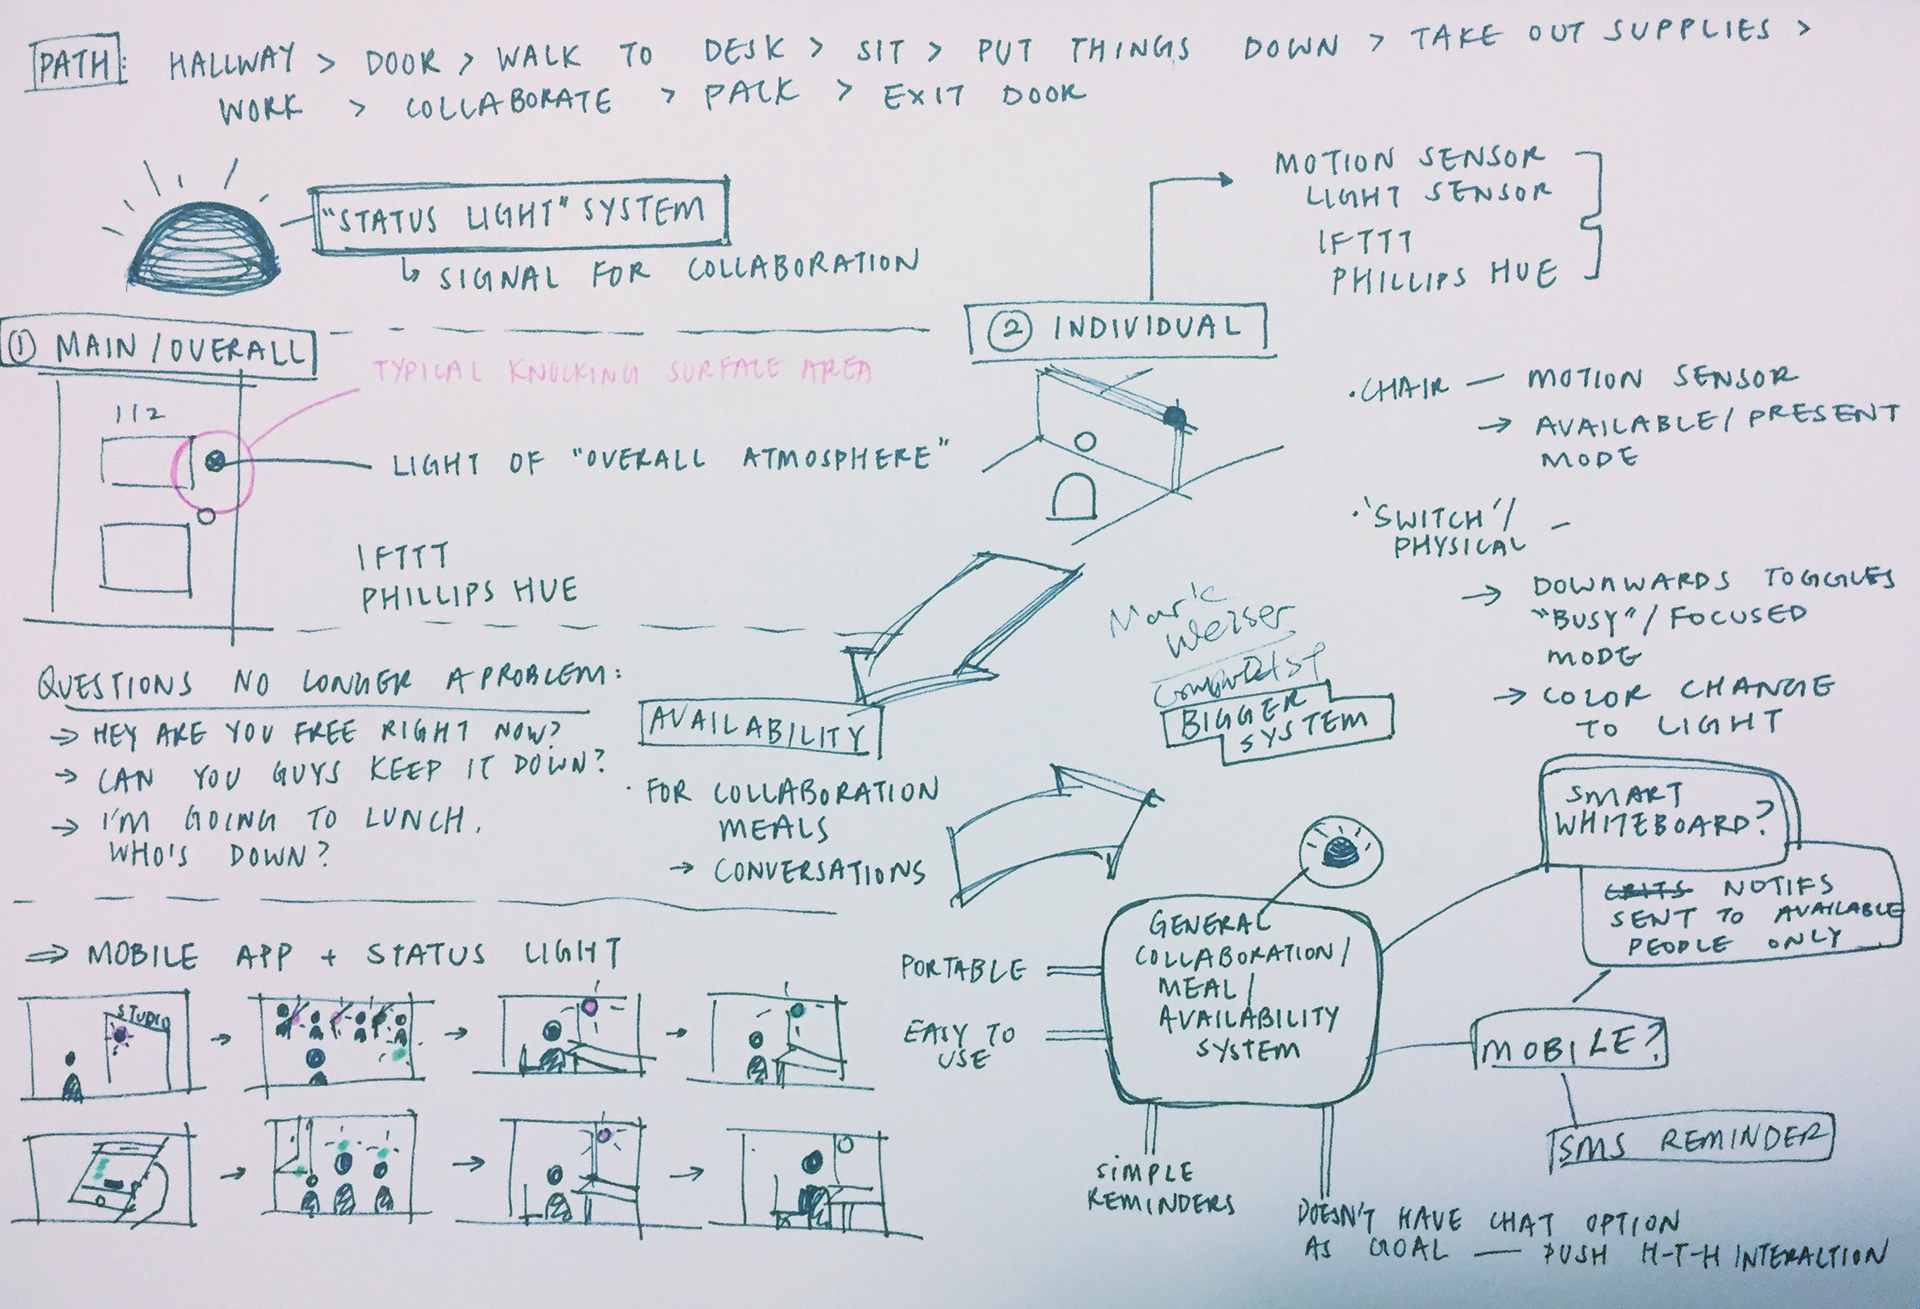 PATH: HALLWAY > DOOR > WALK TO DESK > SIT > PUT THINGS DOWN > TAKE OUT SUPPLIES >
WORK > COLLABORATE > PACK > EXIT DOOR
"STATUS LIGHT" SYSTEM
↳ SIGNAL FOR COLLABORATION
① MAIN / OVERALL
TYPICAL KNOCKING SURFACE AREA
112
LIGHT OF "OVERALL ATMOSPHERE"
IFTTT
PHILLIPS HUE
② INDIVIDUAL
MOTION SENSOR
LIGHT SENSOR
IFTTT
PHILLIPS HUE
• CHAIR — MOTION SENSOR
→ AVAILABLE / PRESENT
MODE
• 'SWITCH' / —
PHYSICAL
→ DOWNWARDS TOGGLES
"BUSY" / FOCUSED
MODE
→ COLOR CHANGE
TO LIGHT
QUESTIONS NO LONGER A PROBLEM:
→ HEY ARE YOU FREE RIGHT NOW?
→ CAN YOU GUYS KEEP IT DOWN?
→ I'M GOING TO LUNCH.
WHO'S DOWN?
AVAILABILITY
• FOR COLLABORATION
MEALS
→ CONVERSATIONS
Mark
Weiser
BIGGER
SYSTEM
SMART
WHITEBOARD?
CRITS NOTIFS
SENT TO AVAILABLE
PEOPLE ONLY
GENERAL
COLLABORATION /
MEAL /
AVAILABILITY
SYSTEM
PORTABLE
EASY TO
USE
SIMPLE
REMINDERS
DOESN'T HAVE CHAT OPTION
AS GOAL — PUSH H-T-H INTERACTION
MOBILE?
SMS REMINDER
⇒ MOBILE APP + STATUS LIGHT
STUDIO